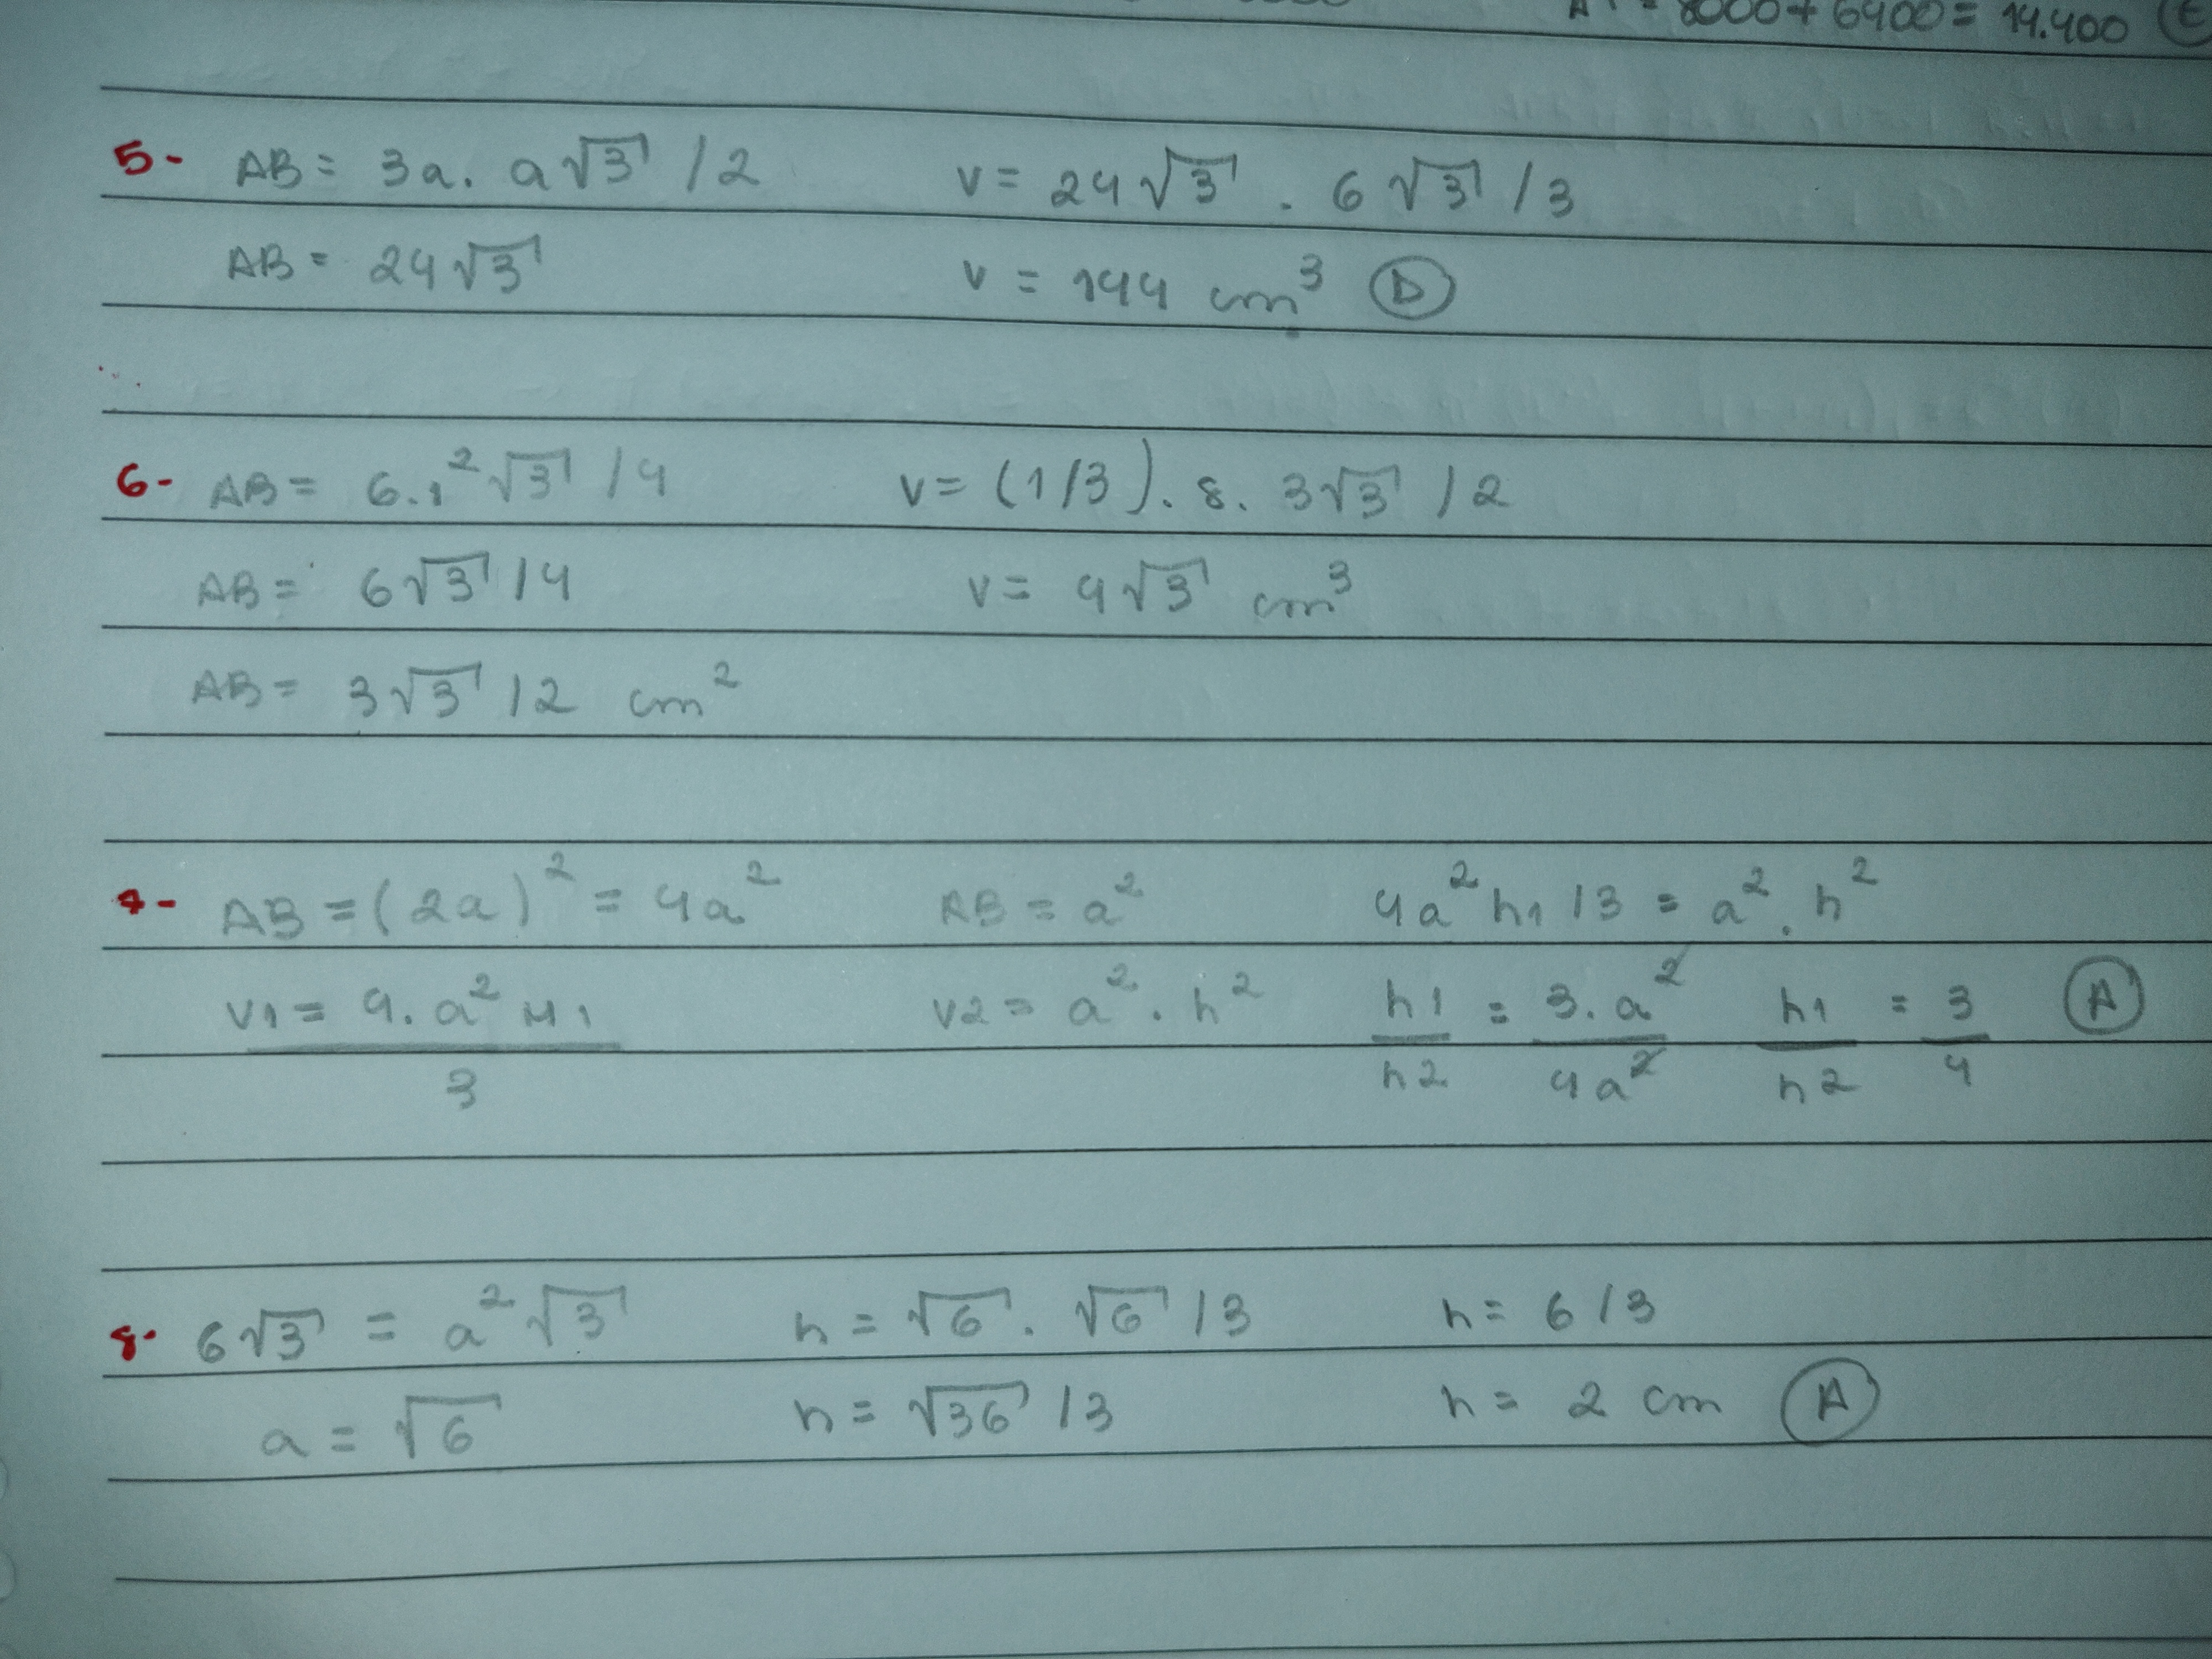 = 8000 + 6400 = 14.400 (E
5- AB = 3a. a√3 /2 V = 24√3 . 6√3 /3
AB = 24√3 V = 144 cm³ (D)
6- AB = 6.1²√3 /4 V = (1/3). 8. 3√3 /2
AB = 6√3 /4 V = 4√3 cm³
AB = 3√3 /2 cm²
7- AB = (2a)² = 4a² AB = a² 4a² h1 /3 = a² . h²
V1 = 4. a² H1 / 3 V2 = a² . h² h1/h2 = 3. a²/4a² h1/h2 = 3/4 (A)
8- 6√3 = a²√3 h = √6 . √6 /3 h = 6 /3
a = √6 h = √36 /3 h = 2 cm (A)